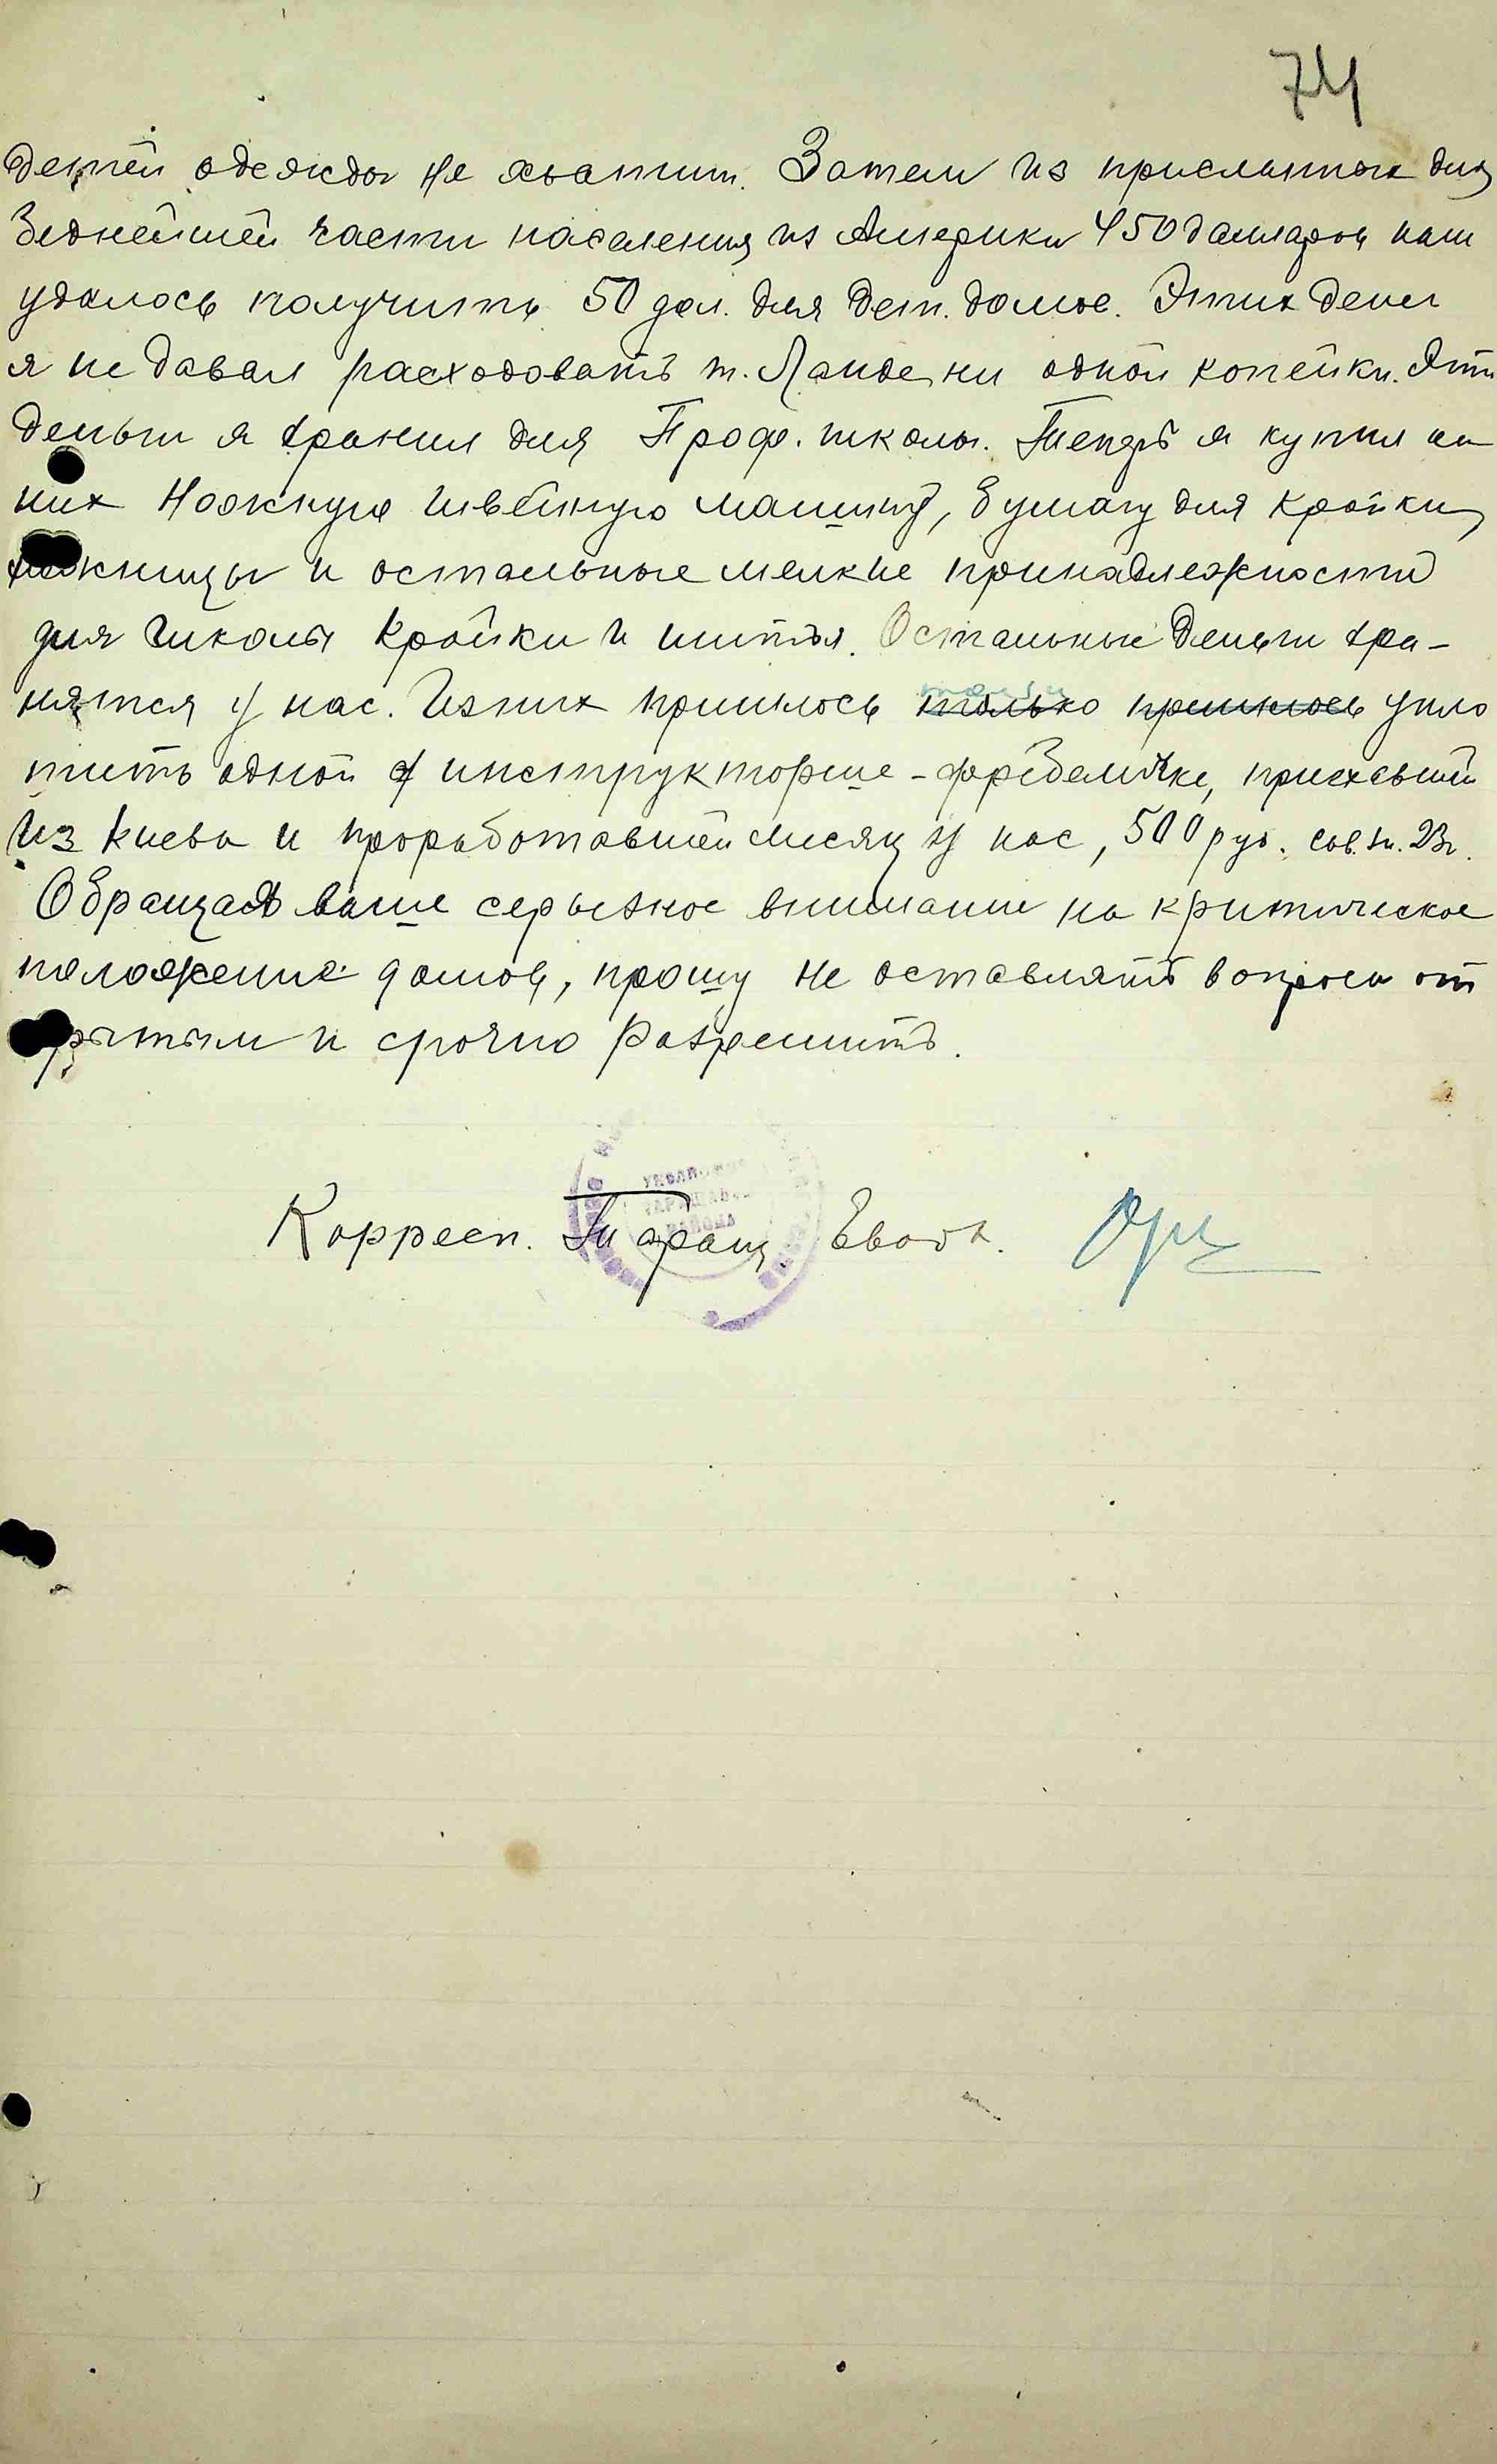 74
детей одежды не хватит. Затем из присланных для
беднейшей части населения из Америки 450 долларов нам
удалось получить 50 дол. для Дет. домов. Этих денег
я не давал расходовать т. Ланде ни одной копейки. Эти
деньги я хранил для Проф. школы. Теперь я купил на
них ножную швейную машину, бумагу для кройки,
ножницы и остальные мелкие принадлежности
для школы кройки и шитья. Остальные деньги хра-
нятся у нас. Из них пришлось только пришлось упло
тить одной инструкторше - фребеличке, приехавшей
из Киева и проработавшей месяц у нас, 500 руб. сов. зн. 23 г.
Обращая ваше серьезное внимание на критическое
положение домов, прошу не оставлять вопроса от
крытым и срочно разрешить.
Корресп. Таращ. Евобк.